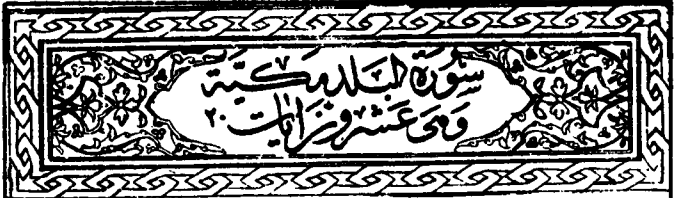 سورة البلد مكية
وهى عشرون آيات ٢٠